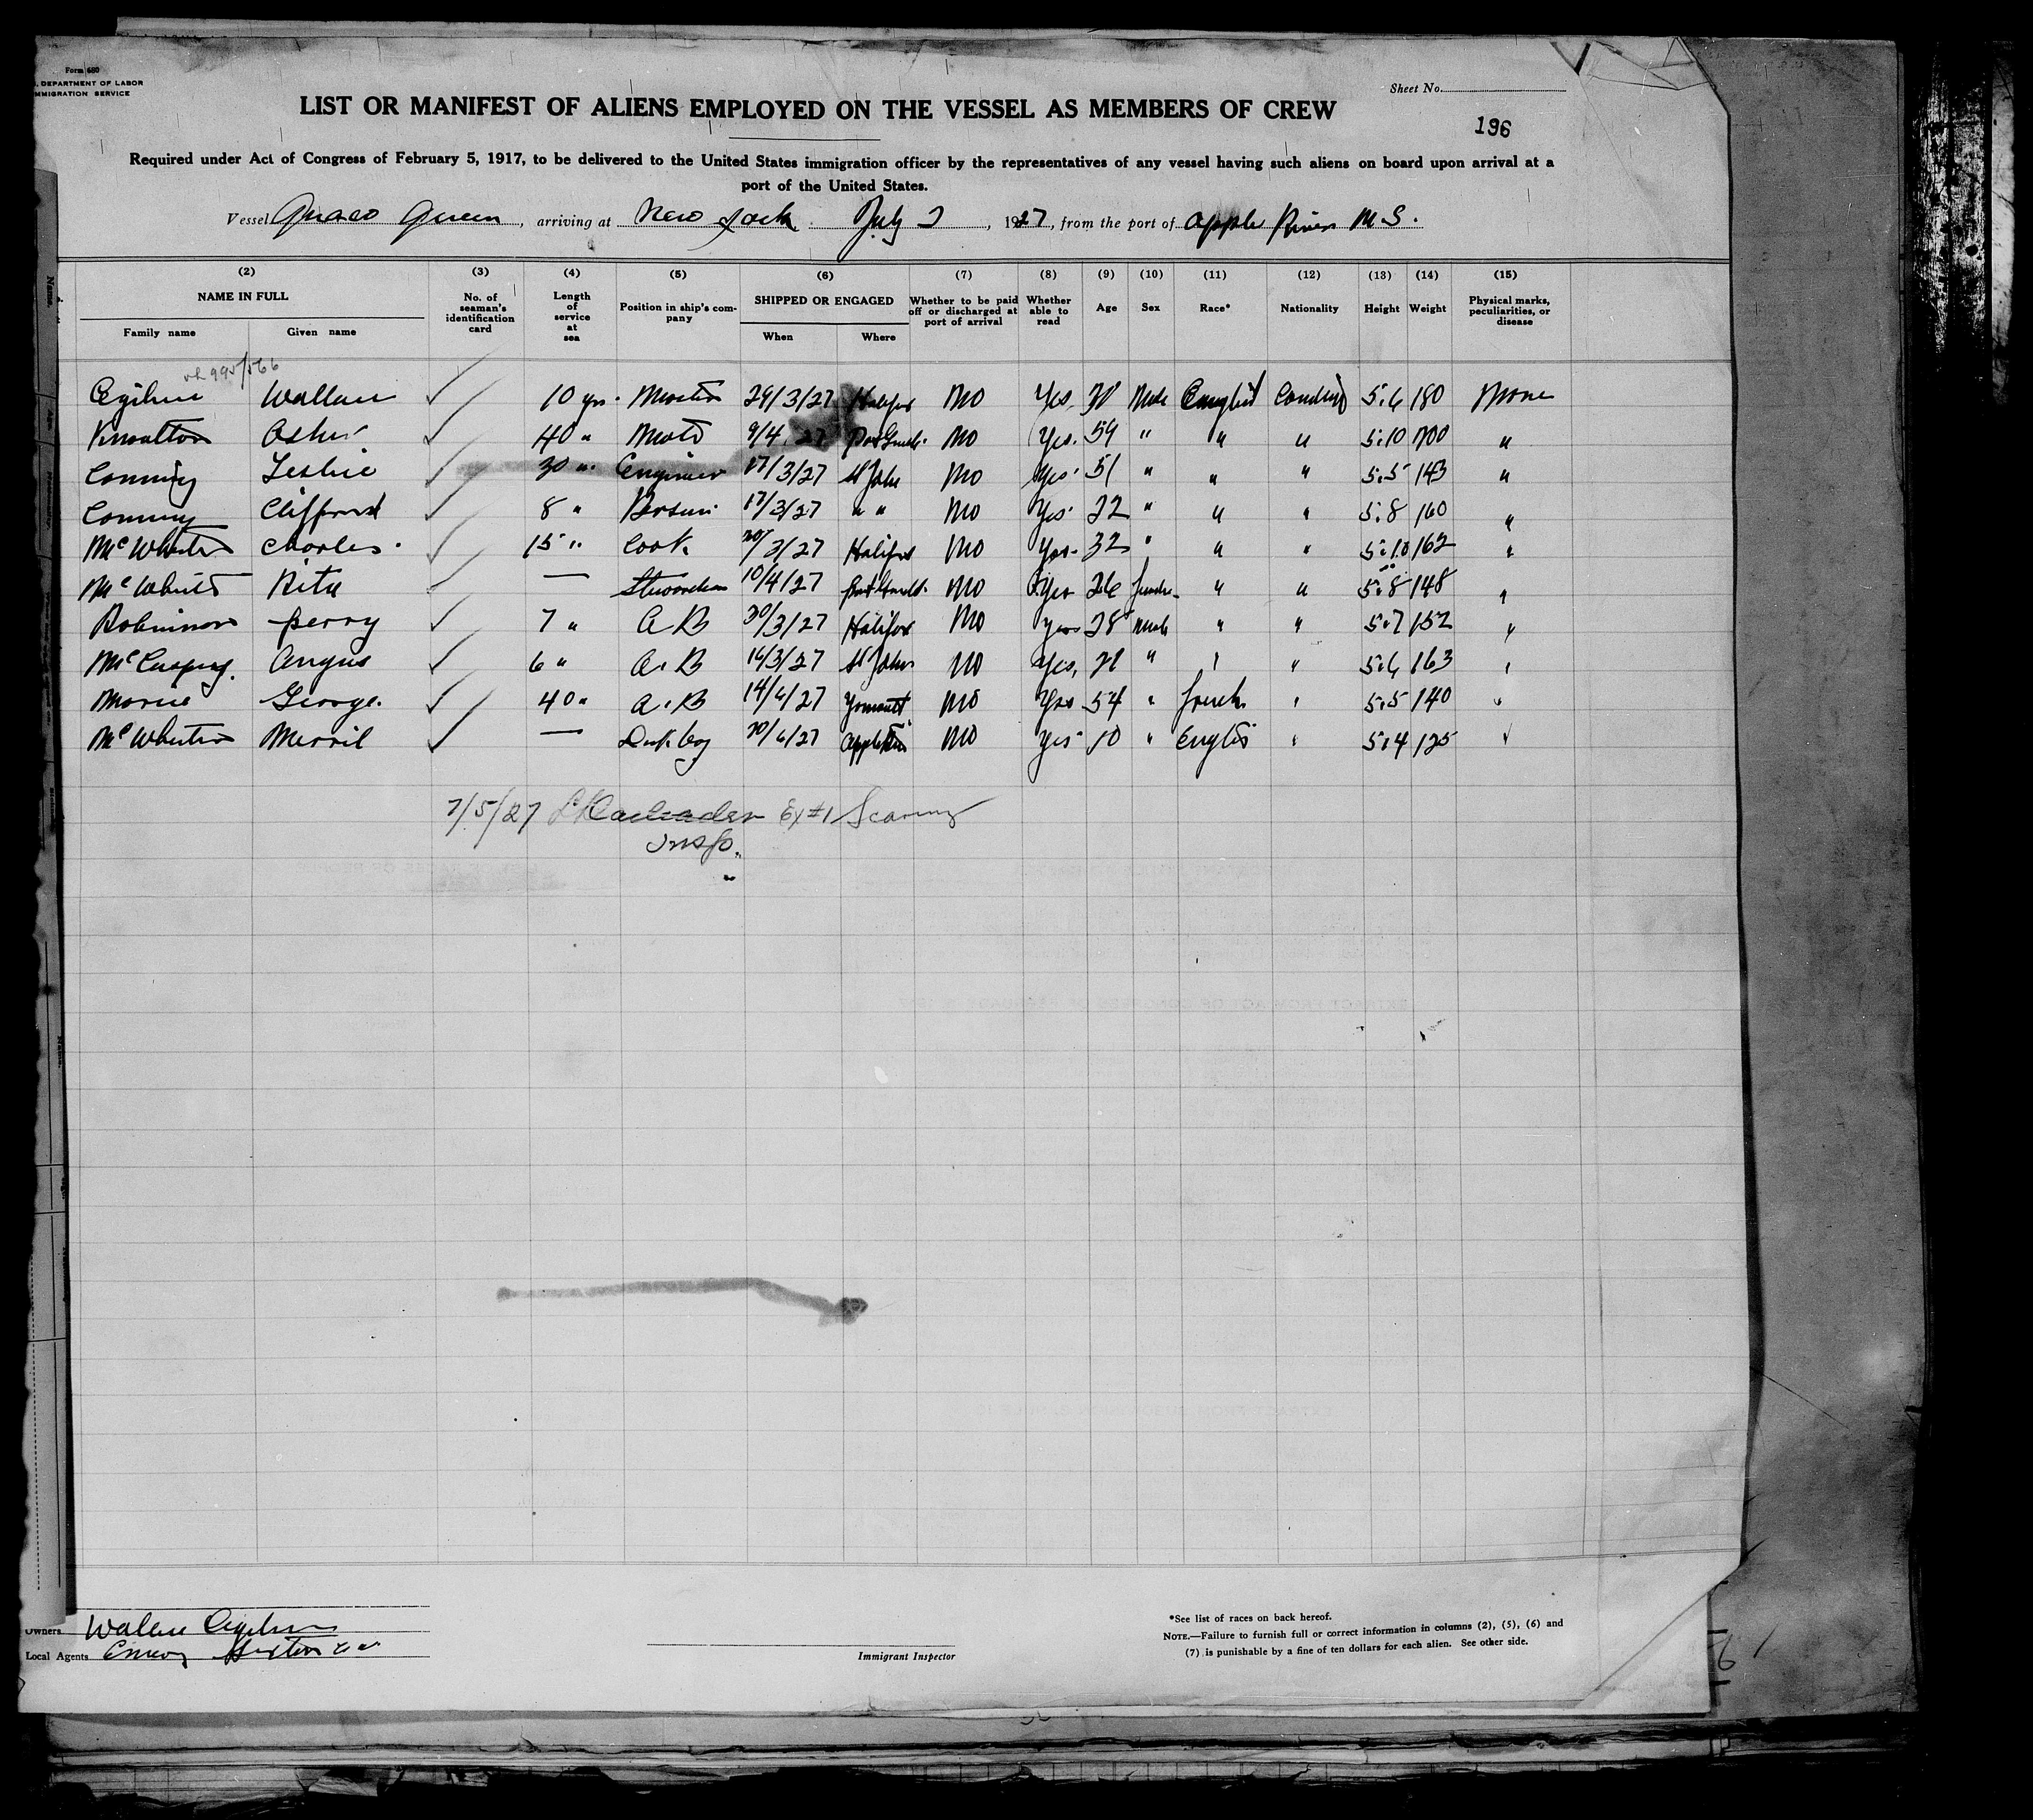 Form 680
DEPARTMENT OF LABOR
IMMIGRATION SERVICE
Sheet No.
LIST OR MANIFEST OF ALIENS EMPLOYED ON THE VESSEL AS MEMBERS OF CREW
196
Required under Act of Congress of February 5, 1917, to be delivered to the United States immigration officer by the representatives of any vessel having such aliens on board upon arrival at a
port of the United States.
Vessel Quaco Queen, arriving at New York July 2, 1927, from the port of Apple River N.S.
(2) (3) (4) (5) (6) (7) (8) (9) (10) (11) (12) (13) (14) (15)
NAME IN FULL No. of seaman's identification card Length of service at sea Position in ship's company SHIPPED OR ENGAGED Whether to be paid off or discharged at port of arrival Whether able to read Age Sex Race* Nationality Height Weight Physical marks, peculiarities, or disease
Family name Given name When Where
995/566
Wallace ✓ 10 yrs. Master 29/3/27 Halifax No Yes Male English 5.6 180 None
Knowlton Asher ✓ 40 " Mate 9/4/27 No Yes. 59 " " " 5.10 200 "
Conning Leslie ✓ 30 " Engineer 17/3/27 St John No Yes 51 " " " 5.5 143 "
Clifford ✓ 8 " Bosun 17/3/27 " " No Yes 22 " " " 5.8 160 "
McWhirter Charles ✓ 15 " Cook 3/27 Halifax No Yes 32 " " " 5.10 162 "
Rita — Stewardess 10/4/27 No Yes 26 female " " 5.8 148 "
Robinson Perry ✓ 7 " A B 30/3/27 Halifax No Yes 28 Male " " 5.7 152 "
Angus ✓ 6 " A. B 16/3/27 St John No Yes, 21 " " " 5.6 163 "
George ✓ 40 " A. B 14/6/27 No Yes 54 " French " 5.5 140 "
McWhirter Merril ✓ — Deck boy 20/6/27 Apple River No Yes 10 " English " 5.4 125 "
7/5/27 Ex #1
Insp.
Owners
Local Agents
Immigrant Inspector
*See list of races on back hereof.
NOTE.—Failure to furnish full or correct information in columns (2), (5), (6) and
(7) is punishable by a fine of ten dollars for each alien. See other side.